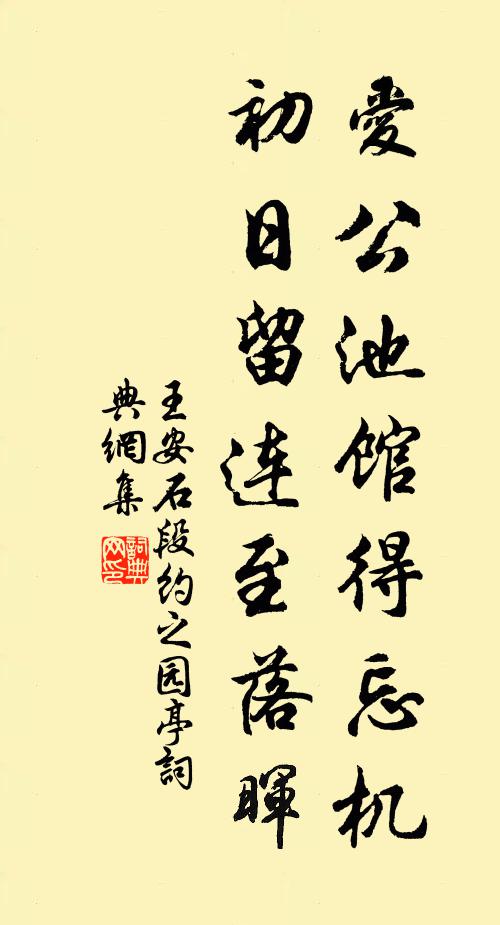 愛公池館得忘机
初日留连至落暉
王安石段约之园亭詞
典網集
詞典网印